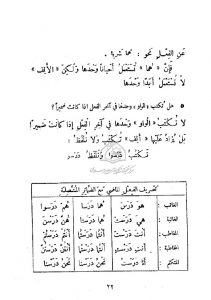 عن الفِعْل نحو : هما شربا .
فَإِنَّ « هما » تُسْتَعْمَلُ أحيانًا وَحْدَهَا وَلَكِنَّ « الألِف »
لَا تُسْتَعْمَلُ أَبَدًا وَحْدَهَا
• هل تُكْتَبُ « الواو » وَحْدَها في آخِر الفعل اذا كانت ضميرًا ؟
لَا تُكْتَبُ « الواو » وَحْدَها في آخِر الفِعْل إذا كانت ضَميرًا
بل يُزَادُ عَلَيْهَا « أَلِف » تُكْتَبُ وَلَا تُلفَظُ :
تُكتَبُ دَرَسُوا وَتُلفَظُ دَرَسُو
تصريف الفعل الماضي مع الضمائر المتصلة
الغائب : هو دَرَسَ هما دَرَسا هُمْ دَرَسُوا
الغائبة : هِيَ دَرَسَتْ هُما دَرَسَتا هُنَّ دَرَسْنَ
المخاطب : أنتَ دَرَسْتَ أنتُما دَرَسْتُما أنتُمْ دَرَسْتُمْ
المخاطبة : أنتِ دَرَسْتِ أنتُما دَرَسْتُما أنتُنَّ دَرَسْتُنَّ
المتكلم : أنا دَرَسْتُ نحنُ دَرَسْنا نحنُ دَرَسْنا
٢٢